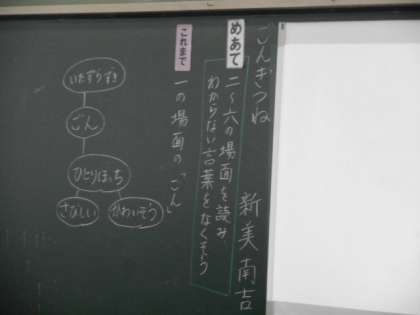 ごんぎつね
新美南吉
めあて
二〜六の場面を読み
わからない言葉をなくそう
これまで
一の場面の「ごん」
いたずらずき
ごん
ひとりぼっち
さびしい
かわいそう